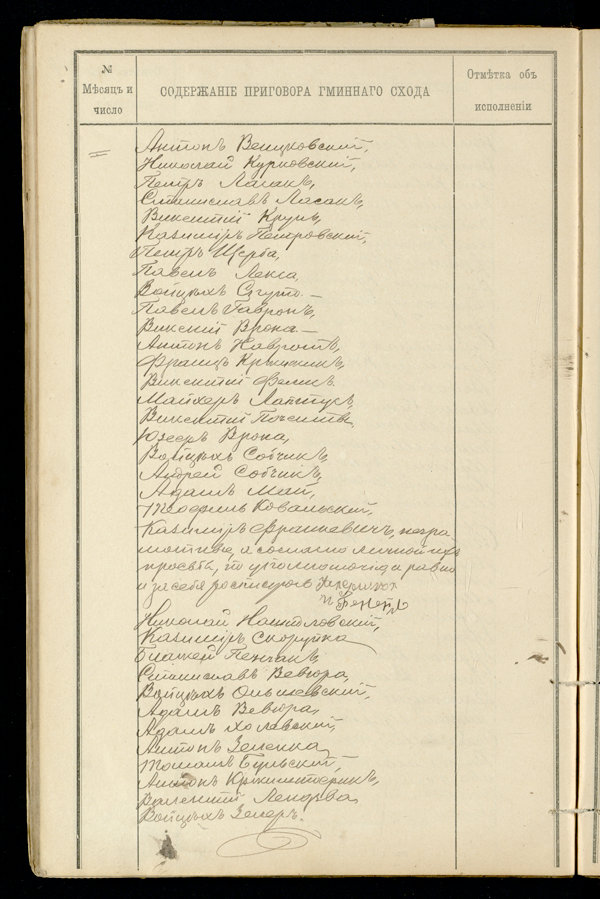 №
Мѣсяцъ и
число
СОДЕРЖАНІЕ ПРИГОВОРА ГМИННАГО СХОДА
Отмѣтка объ
исполненіи
Антонъ Венцковский,
Николай Курковский,
Петръ Ласакъ,
Станиславъ Ласакъ,
Викентій Крупъ,
Казимиръ Петровский,
Петръ Щерба,
Павелъ Ленса
Войцѣхъ
Павелъ Гавронъ,
Викентій Врона
Антонъ
Францъ
Викентій Феликъ
Майхеръ Лаптукъ
Викентій
Юзефъ Врона,
Войцѣхъ Собчикъ,
Андрей Собчикъ,
Адамъ Май,
Теофилъ Ковальский,
Казимиръ Франкевичъ, негра
мотные, а согласно личной ихъ
просьбы, по уполномочію а равно
и за себя росписуюсь
и
Николай
Казимиръ Скорупка
Блажей Пенчакъ,
Станиславъ Вевюра,
Войцѣхъ Ольшевский,
Адамъ Вевюра,
Адамъ Холевский,
Антонъ Зеленка,
Томашъ Бульский,
Антонъ
Валентій
Войцѣхъ Зелеръ.